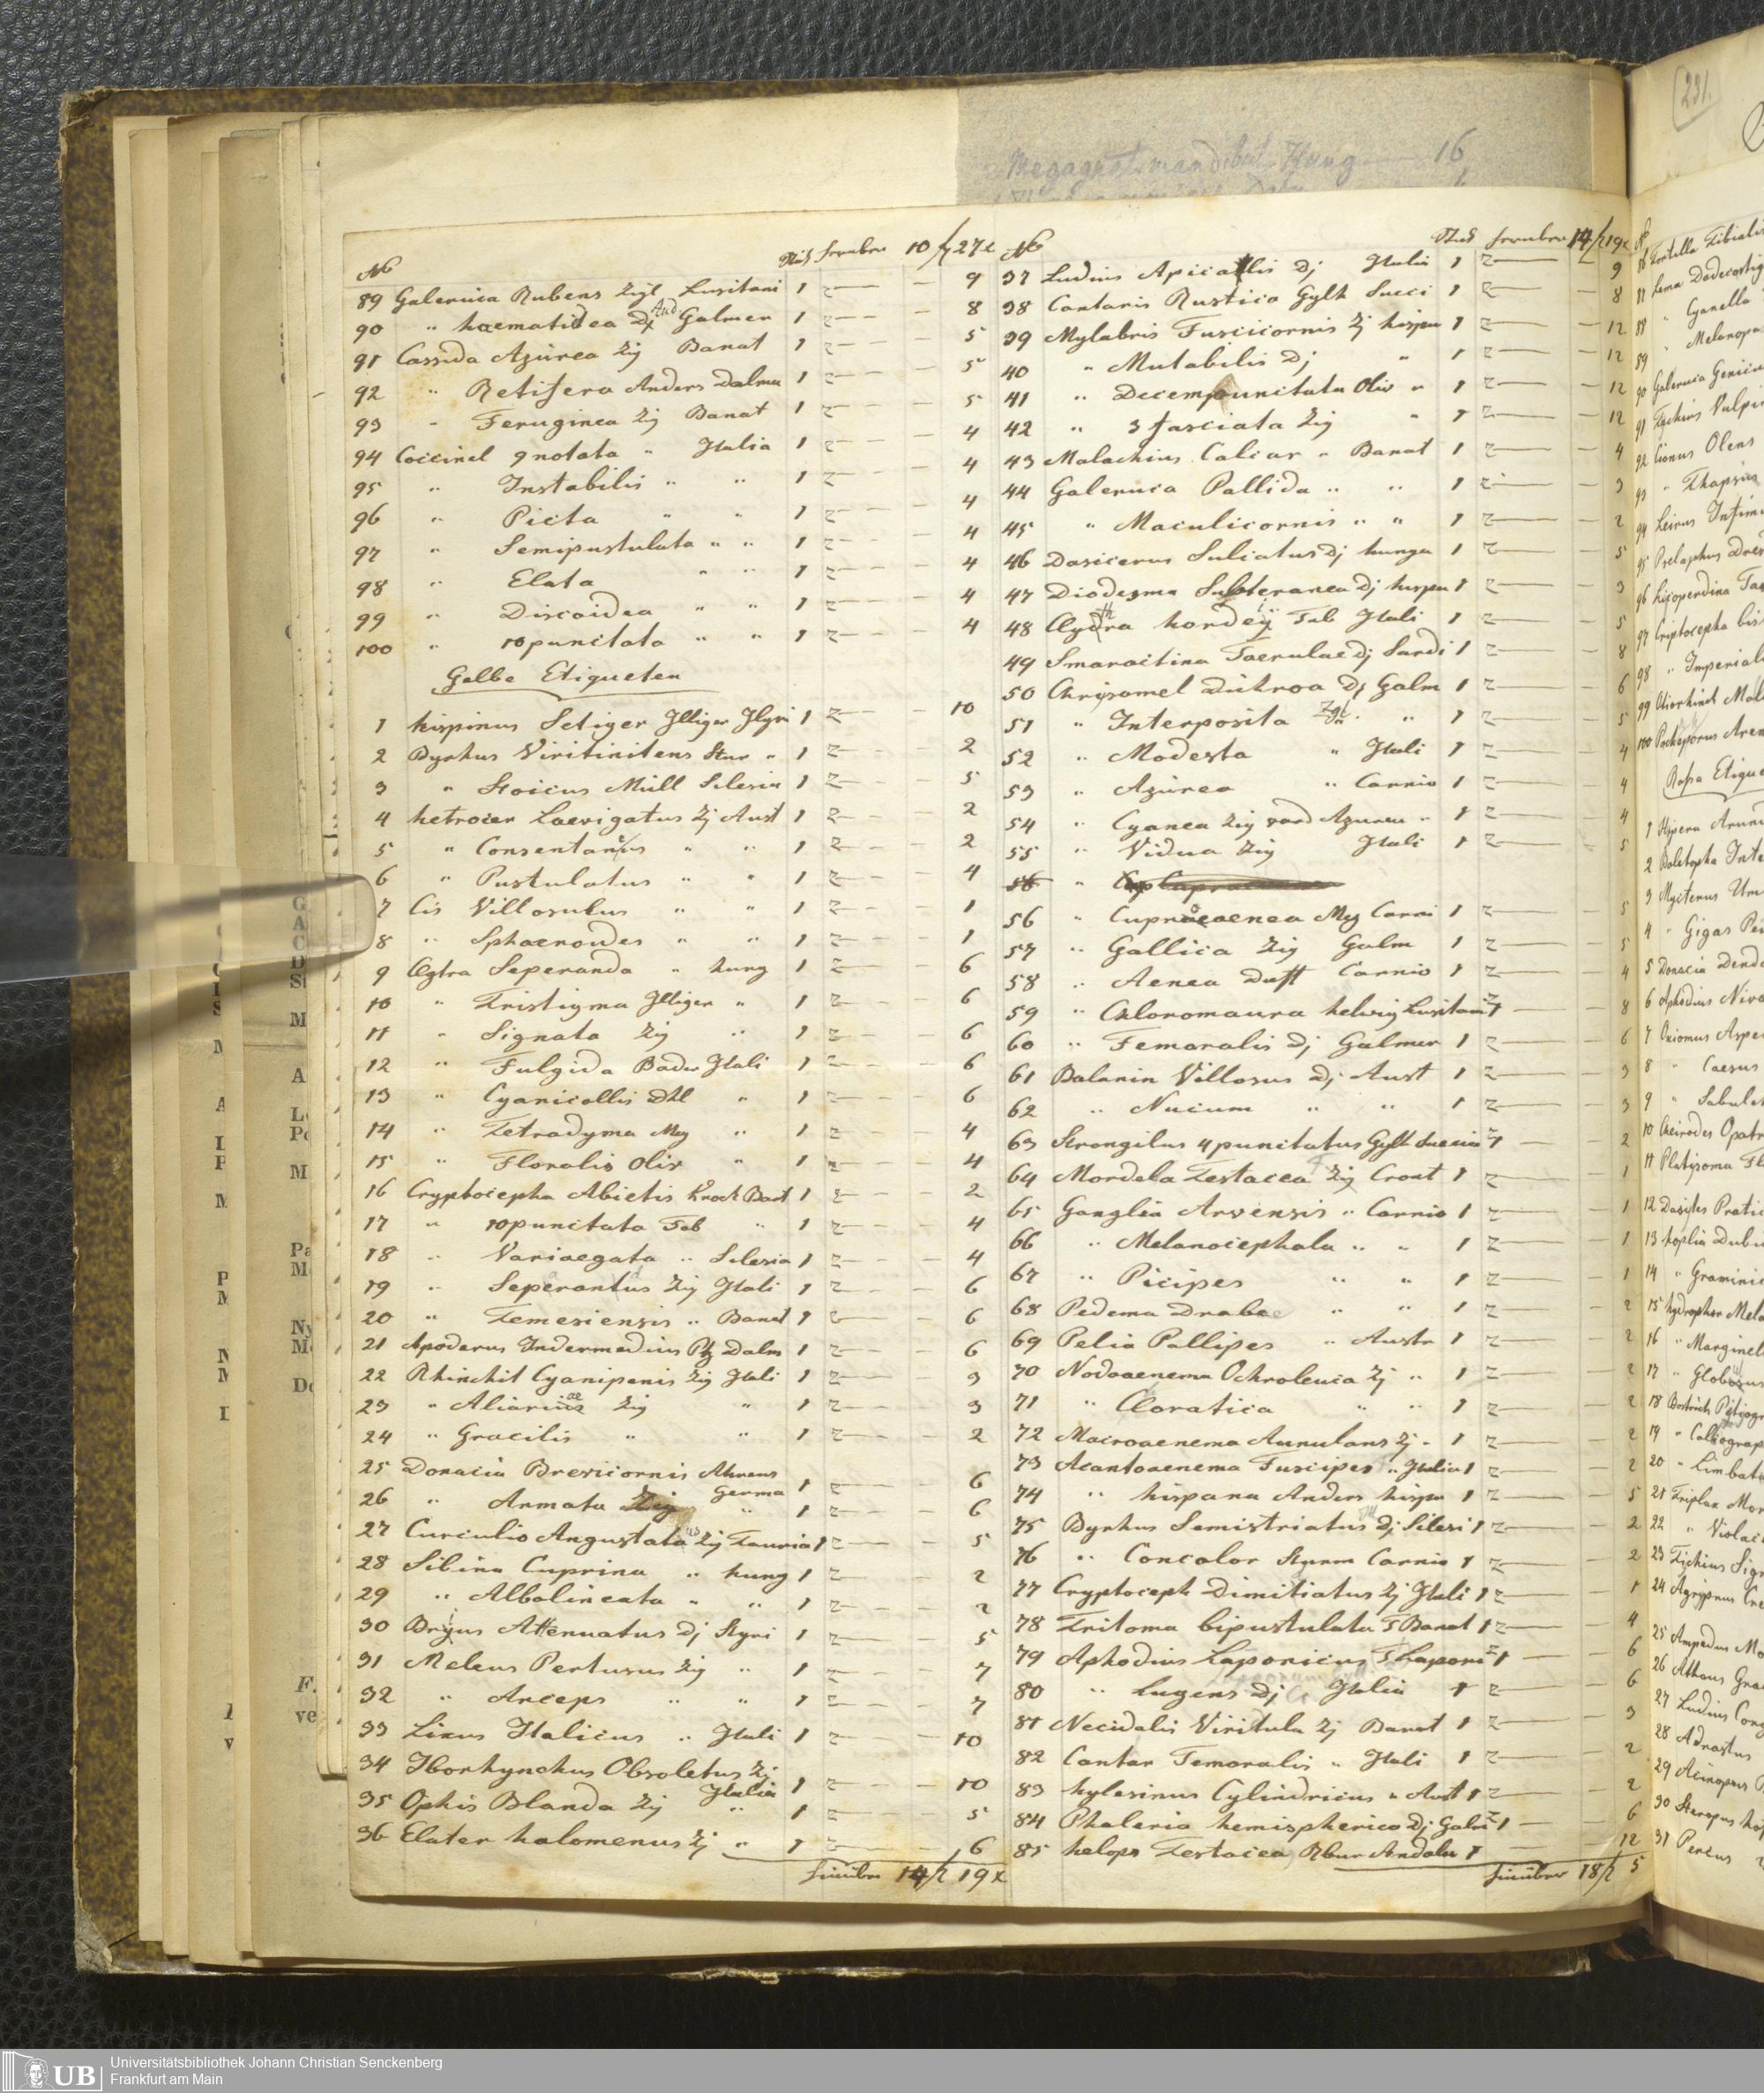 Megagnat. mandibul Hung 16
No Stük 10 f 27 x
89 Galeruca Rubens Zigl Lusitani 1 z — — 9
90 " haematidea Dj And Galmen 1 z — — 8
91 Cassida Azúrea Zig Banat 1 z — — 5
92 " Retifera Anders Dalma 1 z — — 5
93 " Feruginea Zig Banat 1 z — — 5
94 Coccinel 9notata " Italia 1 z — — 4
95 " Instabilis " " 1 z — — 4
96 " Picta " " 1 z — — 4
97 " Semipustulata " " 1 z — — 4
98 " Elata " " 1 z — — 4
99 " Discoidea " " 1 z — — 4
100 " 10punctata " " 1 z — — 4
Gelbe Etiqueten
1 hispinus Setiger Illiger Ilyri 1 z — — 10
2 Byrhus Viritinitens Stur " 1 z — — 2
3 " Stoicus Müll Silesia 1 z — — 5
4 hetrocer Laevigatus Zj Aust 1 z — — 2
5 " Consentanius " " 1 z — — 2
6 " Pustulatus " " 1 z — — 4
7 Cis Villosulus " " 1 z — — 1
8 " Sphaeroides " " 1 z — — 1
9 Clytra Seperanda " hung 1 z — — 6
10 " Tristigma Illiger " 1 z — — 6
11 " Signata Zig " 1 z — — 6
12 " Fulgida Bader Itali 1 z — — 6
13 " Cyanicollis Dhl " 1 z — — 6
14 " Tetradyma Meg " 1 z — — 4
15 " Floralis Oliv " 1 z — — 4
16 Cryptocepha Abietis Krock Banat 1 z — — 2
17 " 10punctata Fab " 1 z — — 4
18 " Variaegata " Silesia 1 z — — 4
19 " Seperantus Zig Itali 1 z — — 6
20 " Temesiensis " Banat 1 z — — 6
21 Apoderus Indermedius Ptz Dalm 1 z — — 6
22 Rhinchit Cyanipenis Zig Itali 1 z — — 3
23 " Aliariae Zig " 1 z — — 3
24 " Gracilis " " 1 z — — 2
25 Donacia Brevicornis Ahrens Germa 1 z — — 6
26 " Armata Zig " 1 z — — 6
27 Curculio Angustatus Zig Tauria 1 z — — 5
28 Sibina Cuprina " hung 1 z — — 2
29 " Albolineata " " 1 z — — 2
30 Brijus Attenuatus Dj Styri 1 z — — 5
31 Meleus Pertusus Zig " 1 z — — 7
32 " Anceps " " 1 z — — 7
33 Lixus Italicus " Itali 1 z — — 10
34 Thorhynchus Obsoletus Zj Italia 1 z — — 10
35 Ophis Blanda Zij " 1 z — — 5
36 Elater halomenus Zj " 1 z — — 6
14 f 19 x
No Stük 14 f 19 x
37 Ludius Apicallis Dj Italia 1 z — — 9
38 Cantaris Rustica Gylh Sueci 1 z — — 8
39 Mylabris Fuscicornis Zj hispa 1 z — — 12
40 " Mutabilis Dj " 1 z — — 12
41 " Decempunctata Oliv " 1 z — — 12
42 " 3fasciata Zig " 1 z — — 12
43 Malachius Calcar " Banat 1 z — — 4
44 Galeruca Pallida " " 1 z — — 3
45 " Maculicornis " " 1 z — — 2
46 Dasicerus Sulcatus Dj hunga 1 z — — 5
47 Diodesma Subteranea Dj hispa 1 z — — 3
48 Clythra hordeij Fab Itali 1 z — — 5
49 Smaractina Faerulae Dj Sardi 1 z — — 8
50 Chrysomel Dúhroa Dj Galm 1 z — — 6
51 " Interposita Zgl. " 1 z — — 5
52 " Modesta " Itali 1 z — — 4
53 " Azúrea " Carnio 1 z — — 4
54 " Cyanea Zig Azurea " 1 z — — 4
55 " Vidua Zig Itali 1 z — — 5
56 " Cupraeaenea Meg Carni 1 z — — 5
57 " Gallica Zig Galm 1 z — — 5
58 " Aenea Duft Carnio 1 z — — 4
59 " Chloromaura helwig Lusitani 1 z — — 8
60 " Femoralis Dj Galmer 1 z — — 6
61 Balanin Villosus Dj Aust 1 z — — 3
62 " Nucum " " 1 z — — 3
63 Strongilus 4punctatus Gylh Suecia 1 z — — 2
64 Mordela Testacea Zig Croat 1 z — — 1
65 Ganglia Arvensis " Carnio 1 z — — 1
66 " Melanocephala " " 1 z — — 1
67 " Picipes " " 1 z — — 1
68 Pedema Drabae " " 1 z — — 2
69 Pelia Pallipes " Austr 1 z — — 2
70 Nodoaenema Ochroleuca Zj " 1 z — — 2
71 " Cloratica " " 1 z — — 2
72 Macroaenema Annulans Zj " 1 z — — 2
73 Acantoaenema Fuscipes " Italia 1 z — — 2
74 " hispana Anders hispa 1 z — — 5
75 Byrhus Semistriatus Dj Silesi 1 z — — 2
76 " Concolor Sturm Carnio 1 z — — 2
77 Cryptoceph Dimitiatus Zj Itali 1 z — — 1
78 Tritoma bipustulata F Banat 1 z — — 4
79 Aphodius Laponicus F Laponi 1 z — — 6
80 " Lugens Dj Italia 1 z — — 6
81 Necidalis Viritula Zj Banat 1 z — — 3
82 Cantar Femoralis " Itali 1 z — — 2
83 hylesinus Cylindricus " Aust 1 z — — 2
84 Phaleria hemispherica Dj Galm 1 z — — 6
85 helops Testacea Rbur Andalu 1 — — 12
18 f 5
231.
86 Tibialis
88 " Cyanella
90 Galeruca
91 Tychius Vulp
92 Cionus Olens
93 " Thapsus
97 Criptocepha bis
98 " Imperial
Rosa Etique
4 " Gigas
5 Donacia
6 Aphodius Niva
7 Oxiomus Asper
8 " Caesus
9 " Sabulet
10 Cheirodes Opatr
11 Platysoma Fl
13 hoplia Dubi
14 " Graminic
16 " Marginel
17 " Globosus
20 " Limbat
21 Triplax Mor
22 " Violac
26 Athous Gra
27 Ludius Cong
28 Adrastus
29 Acinopus
30 Steropus
31 Percus
UB Universitätsbibliothek Johann Christian Senckenberg
Frankfurt am Main